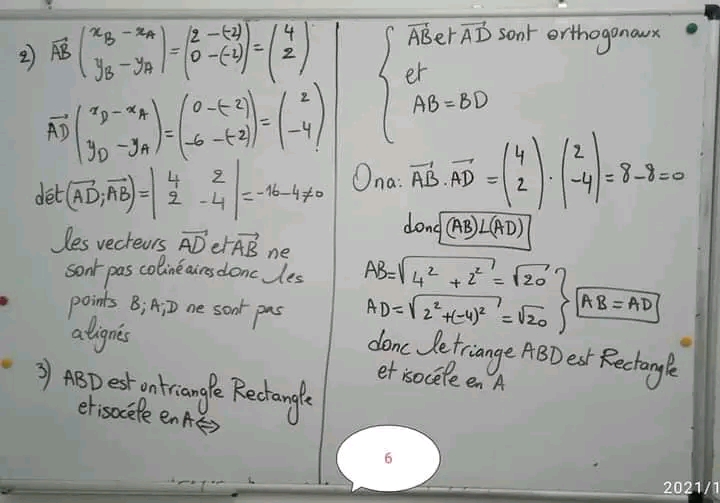 2) AB⃗ (x_B - x_A / y_B - y_A) = (2 -(-2) / 0 -(-2)) = (4 / 2)
AD⃗ (x_D - x_A / y_D - y_A) = (0 -(-2) / -6 -(-2)) = (2 / -4)
dét(AD⃗;AB⃗) = |4 2 / 2 -4| = -16-4≠0
les vecteurs AD⃗ et AB⃗ ne
sont pas colinéaires donc les
points B;A;D ne sont pas
alignés
3) ABD est un triangle Rectangle
et isocéle en A ⇔
{ AB⃗ et AD⃗ sont orthogonaux
et
AB=BD
Ona: AB⃗.AD⃗ = (4 / 2).(2 / -4) = 8-8=0
donc (AB)⊥(AD)
AB=√(4² + 2²) = √20
AD=√(2²+(-4)²) = √20 } AB = AD
donc le triange ABD est Rectangle
et isocéle en A
6
2021/1